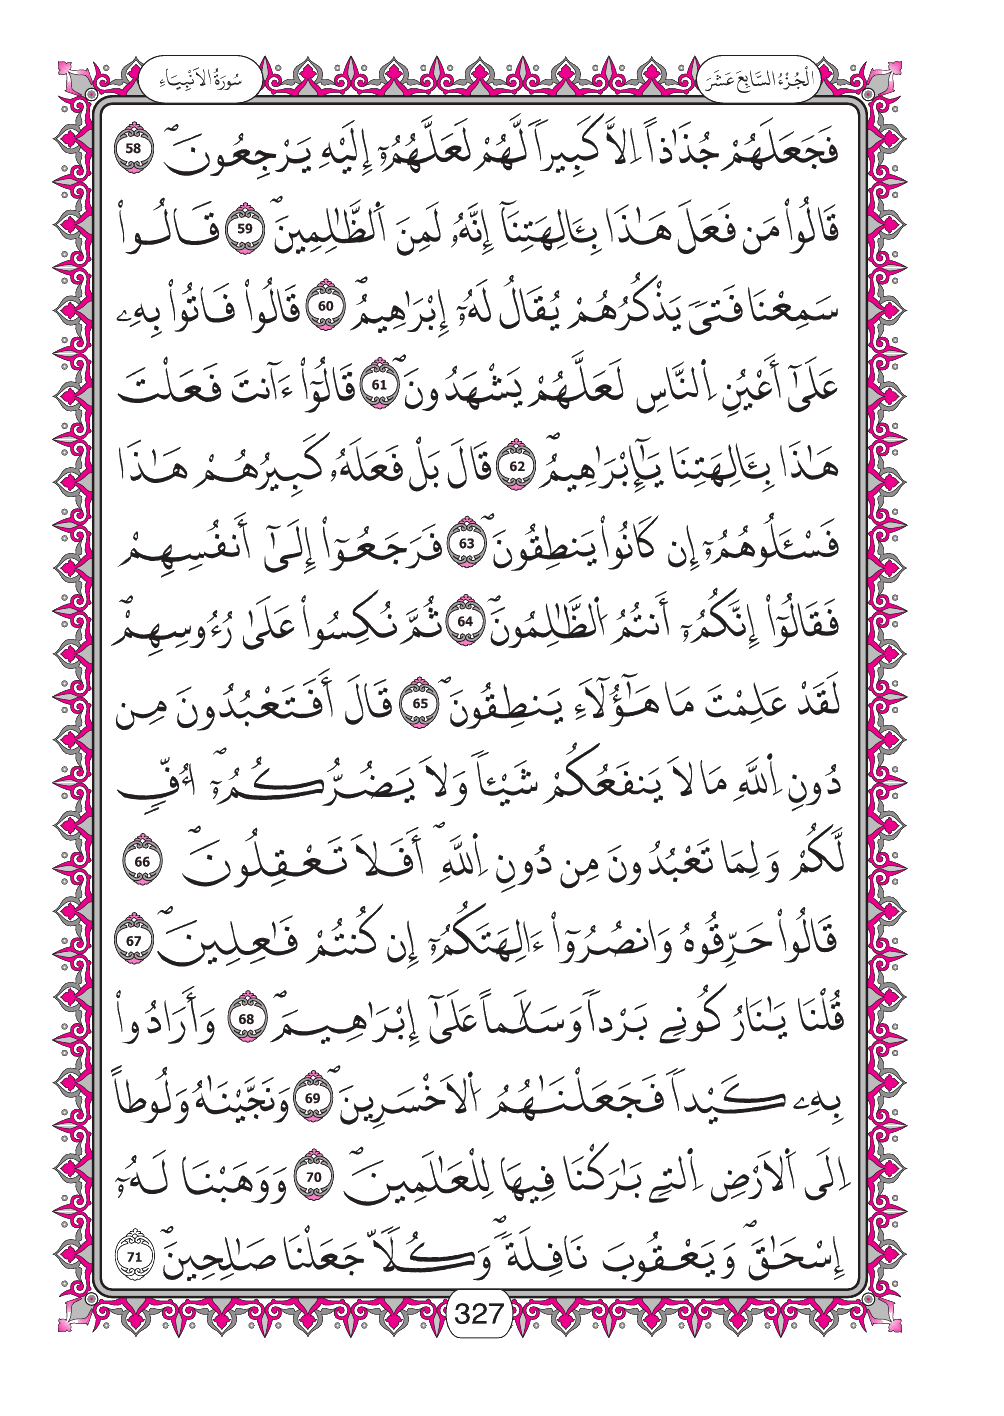 سُورَةُ الْأَنْبِيَاءِ
الْجُزْءُ السَّابِعَ عَشَرَ
فَجَعَلَهُمْ جُذَٰذاً اِلَّا كَبِيراٗ لَّهُمْ لَعَلَّهُمُۥٓ إِلَيْهِ يَرْجِعُونَۖ 58
قَالُواْ مَن فَعَلَ هَٰذَا بِـَٔالِهَتِنَآ إِنَّهُۥ لَمِنَ اَ۬لظَّٰلِمِينَۖ 59 قَالُواْ
سَمِعْنَا فَتيٗ يَذْكُرُهُمْ يُقَالُ لَهُۥٓ إِبْرَٰهِيمُۖ 60 قَالُواْ فَاتُواْ بِهِۦ
عَلَىٰٓ أَعْيُنِ اِ۬لنَّاسِ لَعَلَّهُمْ يَشْهَدُونَۖ 61 قَالُوٓاْ ءَآنتَ فَعَلْتَ
هَٰذَا بِـَٔالِهَتِنَا يَٰٓإِبْرَٰهِيمُۖ 62 قَالَ بَلْ فَعَلَهُۥ كَبِيرُهُمْ هَٰذَا
فَسْـَٔلُوهُمُۥٓ إِن كَانُواْ يَنطِقُونَۖ 63 فَرَجَعُوٓاْ إِلَىٰٓ أَنفُسِهِمْ
فَقَالُوٓاْ إِنَّكُمُۥٓ أَنتُمُ اُ۬لظَّٰلِمُونَۖ 64 ثُمَّ نُكِسُواْ عَلَىٰ رُءُوسِهِمْۖ
لَقَدْ عَلِمْتَ مَا هَٰٓؤُلَآءِ يَنطِقُونَۖ 65 قَالَ أَفَتَعْبُدُونَ مِن
دُونِ اِ۬للَّهِ مَا لَا يَنفَعُكُمْ شَيْـٔاٗ وَلَا يَضُرُّكُمُۥٓۖ أُفّٖ
لَّكُمْ وَلِمَا تَعْبُدُونَ مِن دُونِ اِ۬للَّهِۖ أَفَلَا تَعْقِلُونَۖ 66
قَالُواْ حَرِّقُوهُ وَانصُرُوٓاْ ءَالِهَتَكُمُۥٓ إِن كُنتُمْ فَٰعِلِينَۖ 67
قُلْنَا يَٰنَارُ كُونِے بَرْداٗ وَسَلَٰماً عَلَىٰٓ إِبْرَٰهِيمَۖ 68 وَأَرَادُواْ
بِهِۦ كَيْداٗ فَجَعَلْنَٰهُمُ اُ۬لَاخْسَرِينَۖ 69 وَنَجَّيْنَٰهُ وَلُوطاً
اِلَى اَ۬لَارْضِ اِ۬لتِے بَٰرَكْنَا فِيهَا لِلْعَٰلَمِينَۖ 70 وَوَهَبْنَا لَهُۥٓ
إِسْحَٰقَۖ وَيَعْقُوبَ نَافِلَةٗۖ وَكُلّاٗ جَعَلْنَا صَٰلِحِينَۖ 71
327